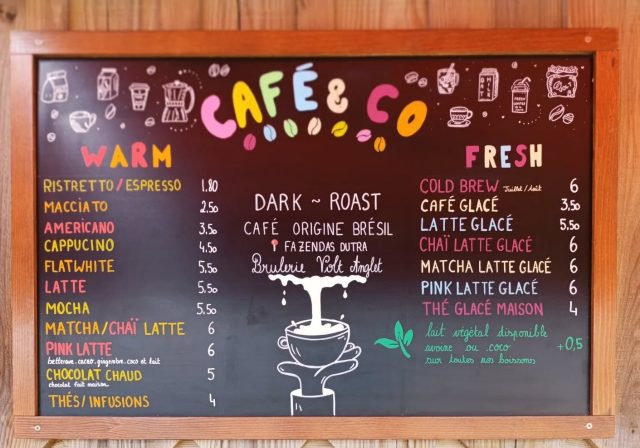 CAFÉ & CO
WARM
RISTRETTO/ESPRESSO 1.80
MACCIATO 2.50
AMERICANO 3.50
CAPPUCINO 4.50
FLATWHITE 5.50
LATTE 5.50
MOCHA 5.50
MATCHA/CHAÏ LATTE 6
PINK LATTE 6
betterave.cacao.gingembre.coco et lait
CHOCOLAT CHAUD 5
chocolat fait maison
THÉS/INFUSIONS 4
DARK ~ ROAST
CAFÉ ORIGINE BRÉSIL
FAZENDAS DUTRA
Brulerie Volt Anglet
FRESH
COLD BREW Juillet/Août 6
CAFÉ GLACÉ 3,50
LATTE GLACÉ 5.50
CHAÏ LATTE GLACÉ 6
MATCHA LATTE GLACÉ 6
PINK LATTE GLACÉ 6
THÉ GLACÉ MAISON 4
lait végétal disponible
avoine ou coco +0,5
sur toutes nos boissons